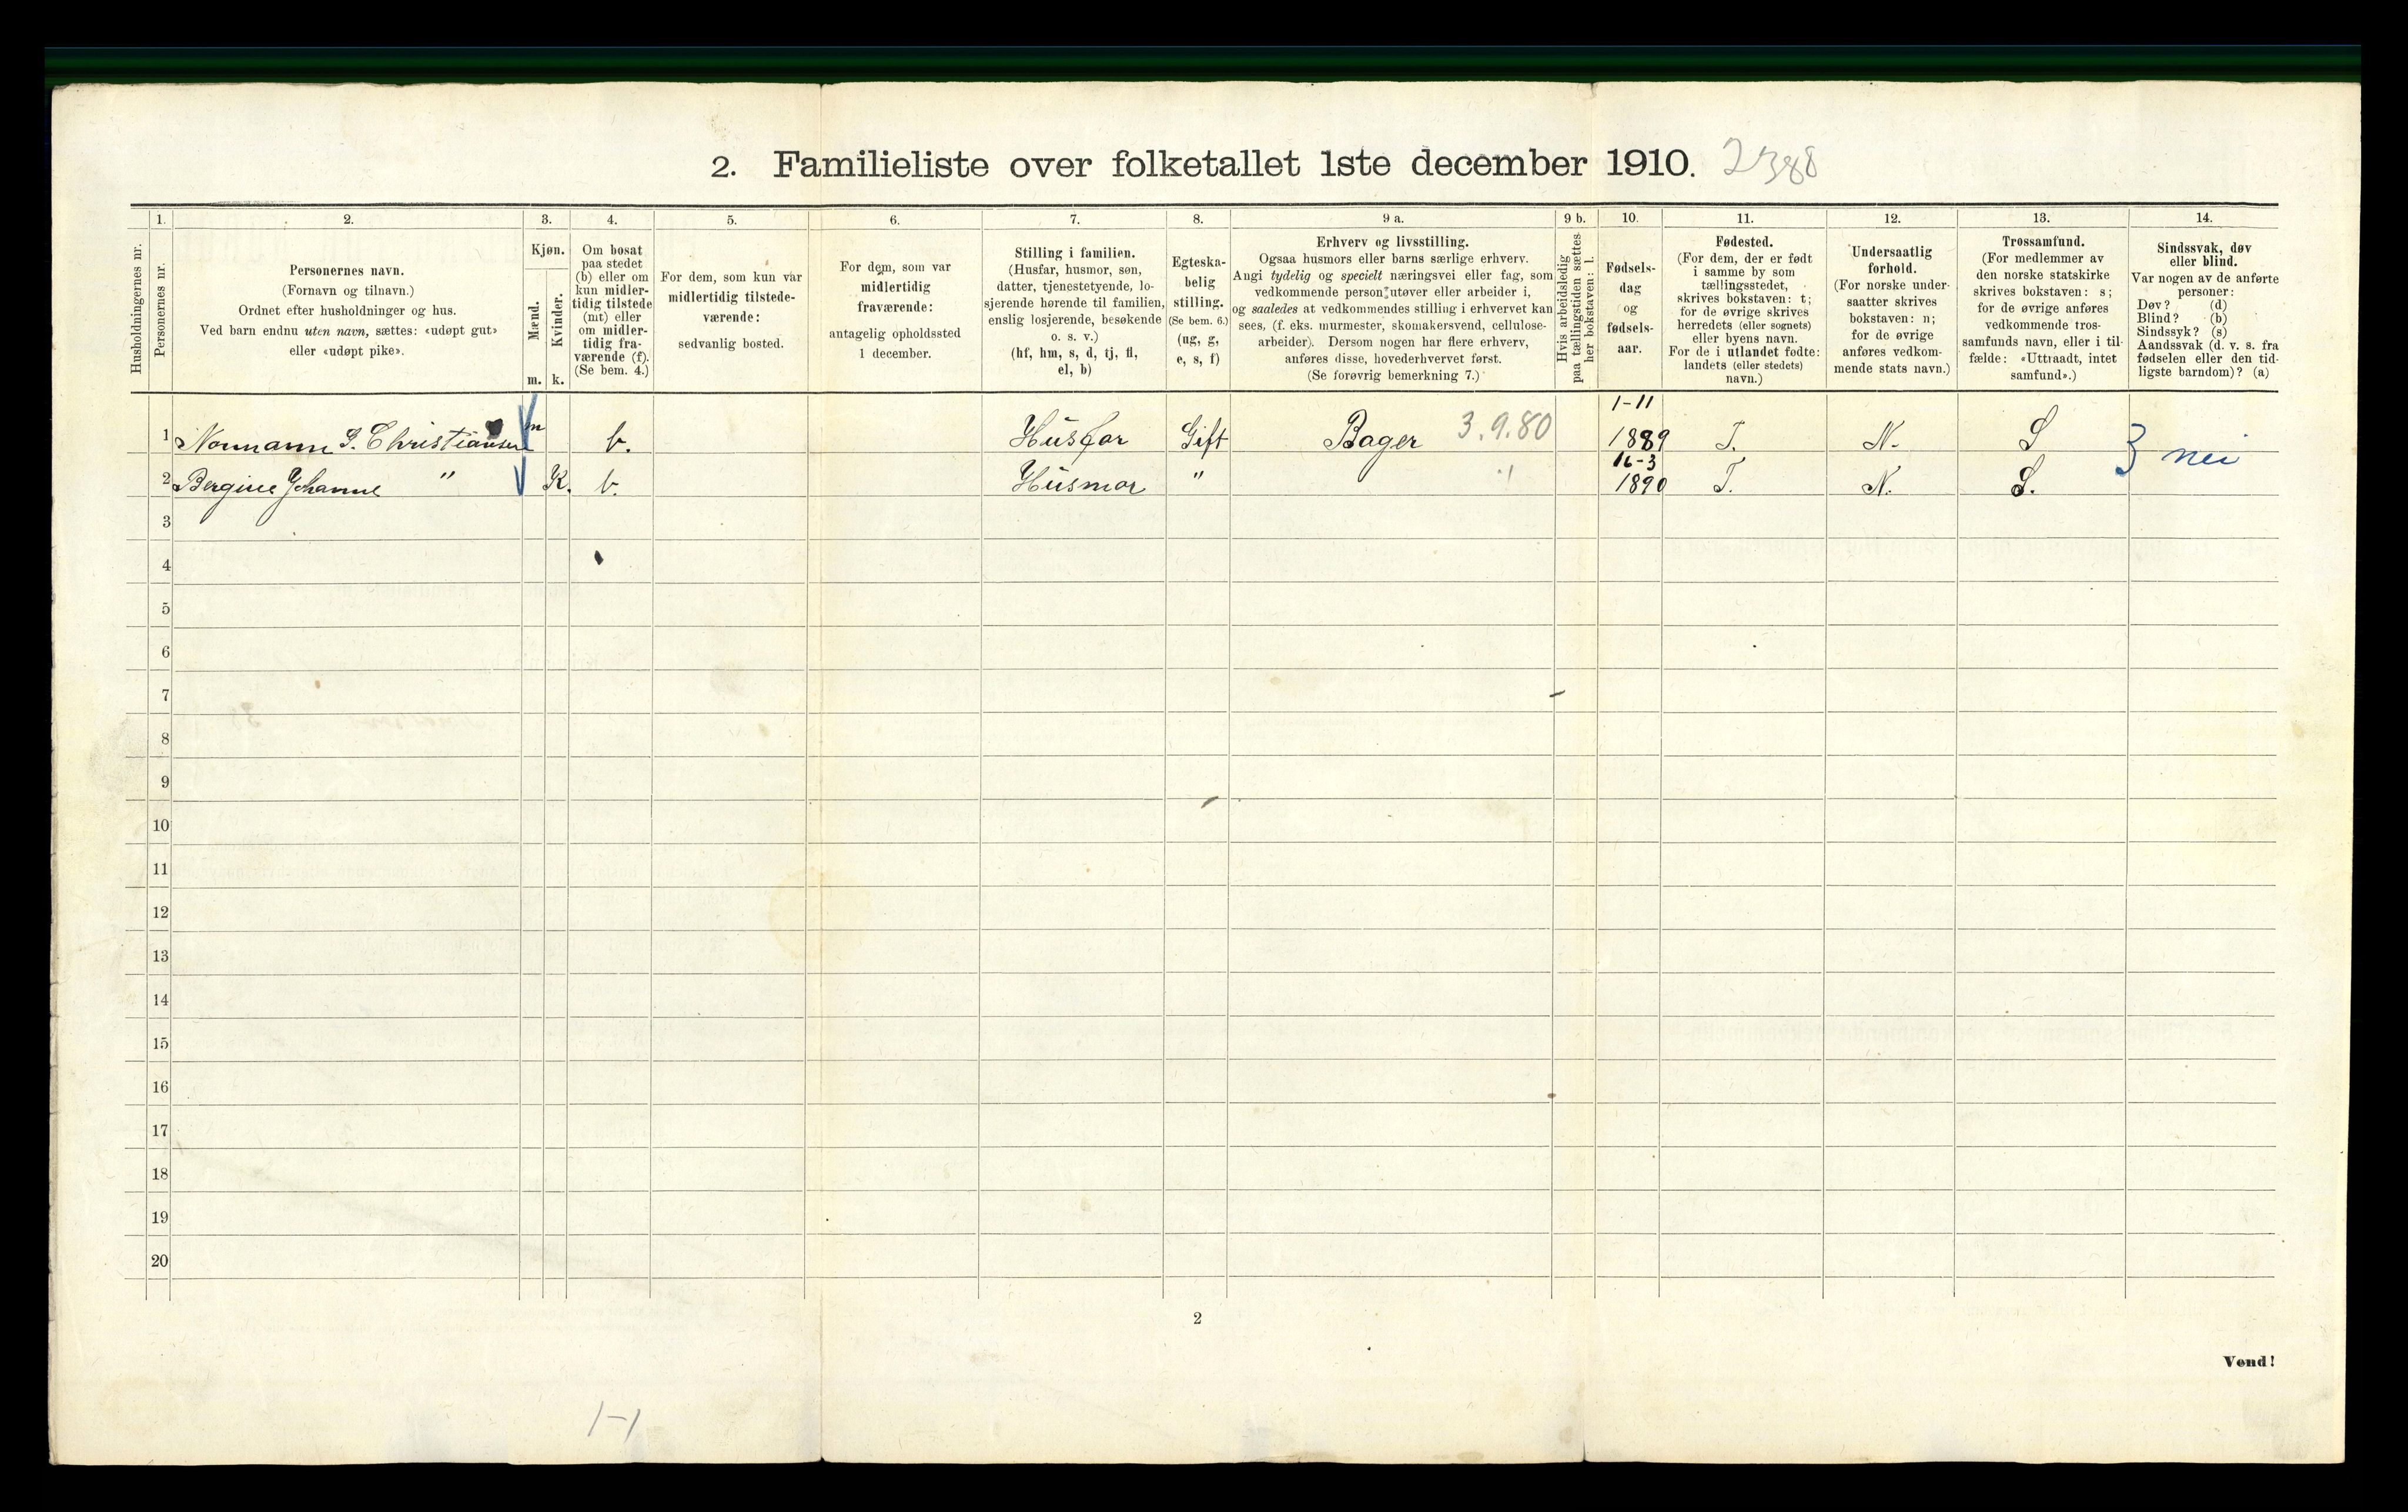 2. Familieliste over folketallet 1ste december 1910. 2388
Husholdningernes nr.
1.
Personernes nr.
2.
Personernes navn.
(Fornavn og tilnavn.)
Ordnet efter husholdninger og hus.
Ved barn endnu uten navn, sættes: «udøpt gut»
eller «udøpt pike».
3.
Kjøn.
Mænd.
Kvinder.
m. k.
4.
Om bosat
paa stedet
(b) eller om
kun midler-
tidig tilstede
(mt) eller
om midler-
tidig fra-
værende (f).
(Se bem. 4.)
5.
For dem, som kun var
midlertidig tilstede-
værende:
sedvanlig bosted.
6.
For dem, som var
midlertidig
fraværende:
antagelig opholdssted
1 december.
7.
Stilling i familien.
(Husfar, husmor, søn,
datter, tjenestetyende, lo-
sjerende hørende til familien,
enslig losjerende, besøkende
o. s. v.)
(hf, hm, s, d, tj, fl,
el, b)
8.
Egteska-
belig
stilling.
(Se bem. 6.)
(ug, g,
e, s, f)
9 a.
Erhverv og livsstilling.
Ogsaa husmors eller barns særlige erhverv.
Angi tydelig og specielt næringsvei eller fag, som
vedkommende person utøver eller arbeider i,
og saaledes at vedkommendes stilling i erhvervet kan
sees, (f. eks. murmester, skomakersvend, cellulose-
arbeider). Dersom nogen har flere erhverv,
anføres disse, hovederhvervet først.
(Se forøvrig bemerkning 7.)
9 b.
Hvis arbeidsledig
paa tællingstiden sættes
her bokstaven: l.
10.
Fødsels-
dag
og
fødsels-
aar.
11.
Fødested.
(For dem, der er født
i samme by som
tællingsstedet,
skrives bokstaven: t;
for de øvrige skrives
herredets (eller sognets)
eller byens navn.
For de i utlandet fødte:
landets (eller stedets)
navn.)
12.
Undersaatlig
forhold.
(For norske under-
saatter skrives
bokstaven: n;
for de øvrige
anføres vedkom-
mende stats navn.)
13.
Trossamfund.
(For medlemmer av
den norske statskirke
skrives bokstaven: s;
for de øvrige anføres
vedkommende tros-
samfunds navn, eller i til-
fælde: «Uttraadt, intet
samfund».)
14.
Sindssvak, døv
eller blind.
Var nogen av de anførte
personer:
Døv? (d)
Blind? (b)
Sindssyk? (s)
Aandssvak (d. v. s. fra
fødselen eller den tid-
ligste barndom)? (a)
1 Normann S. Christiansen m b. Husfar Gift Bager 3.9.80 1-11 1889 T. N. S
2 Bergine Johanne " K. b. Husmor " 16-3 1890 T. N. S.
nei
3
4
5
6
7
8
9
10
11
12
13
14
15
16
17
18
19
20
2
Vend!
1-1